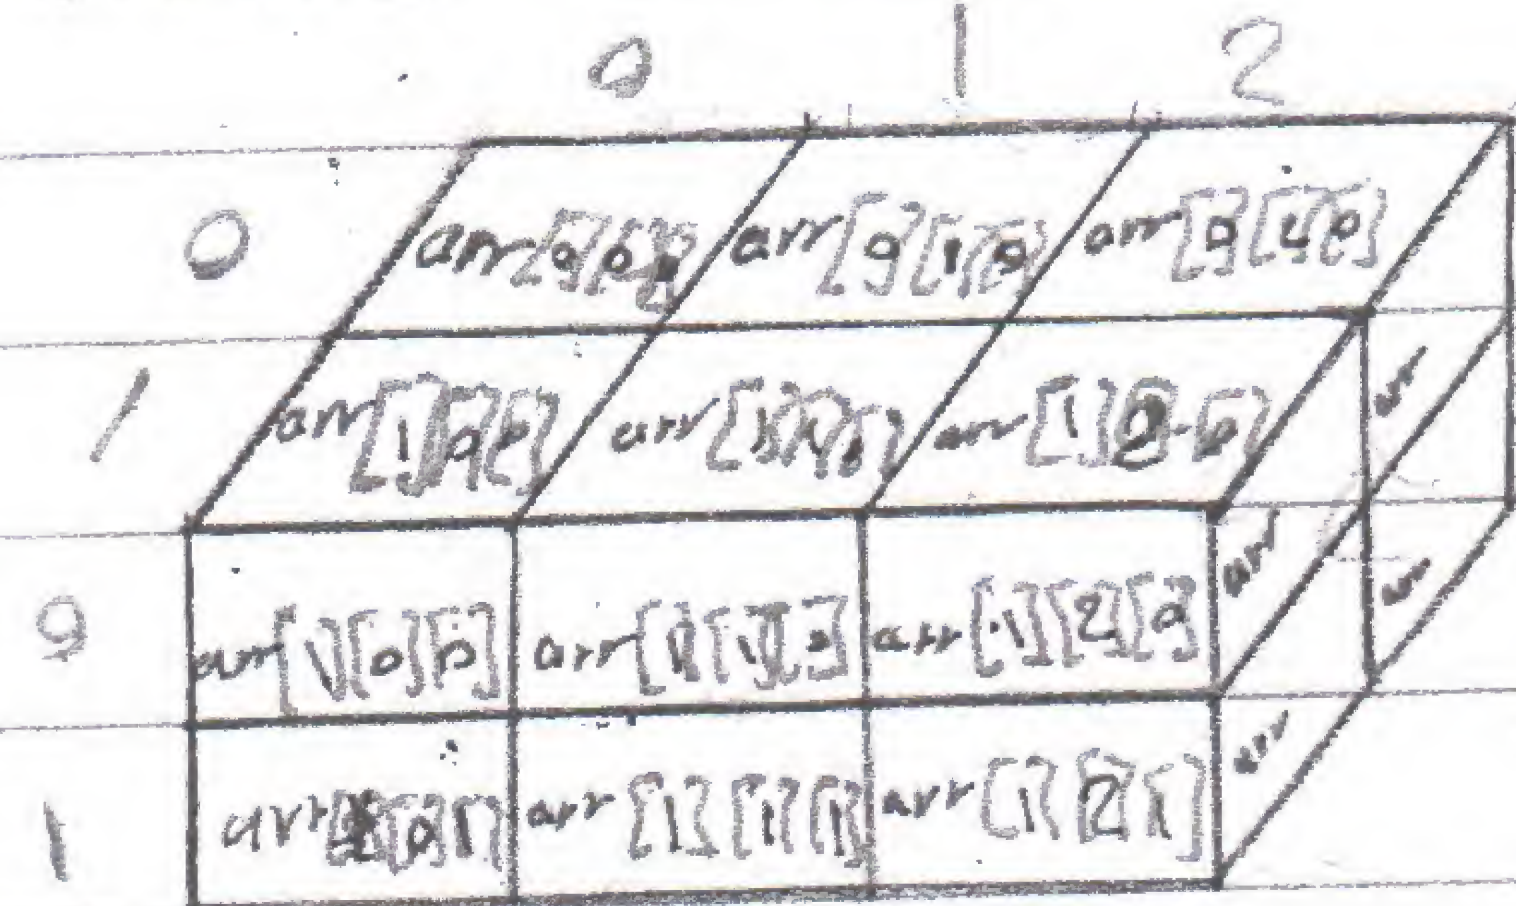 0 1 2
0 arr[0][0][0] arr[0][1][0] arr[0][2][0]
1 arr[1][0][0] arr[1][1][0] arr[1][2][0] arr
0 arr[1][0][0] arr[1][1][0] arr[1][2][0] arr arr
1 arr[1][0][1] arr[1][1][1] arr[1][2][1] arr